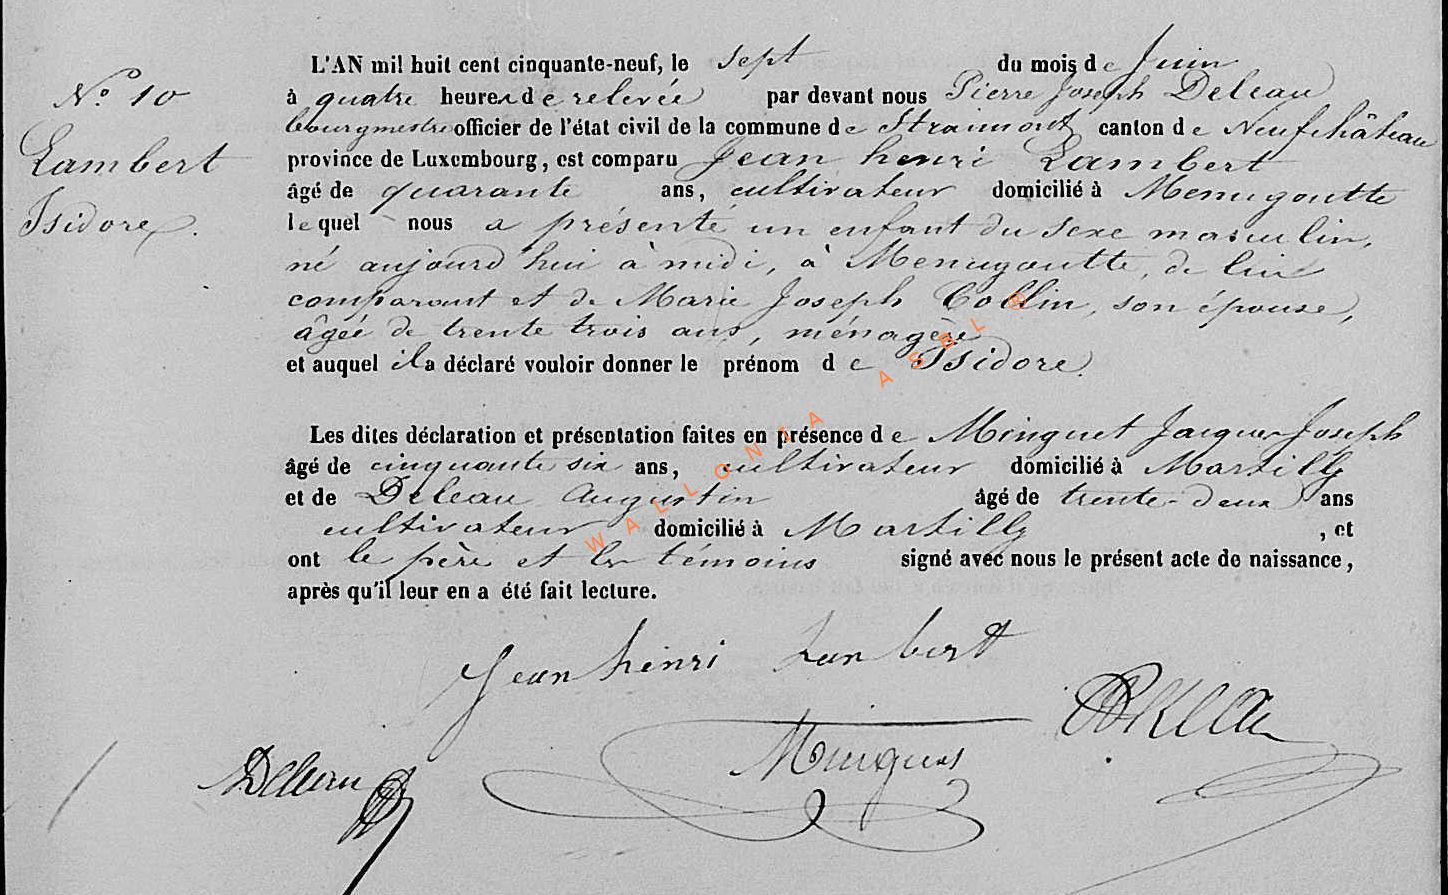 N.o 10
Lambert
Isidore.
L'AN mil huit cent cinquante-neuf, le sept du mois de Juin
à quatre heures de relevée par devant nous Pierre Joseph Deleau
bourgmestre officier de l'état civil de la commune de Straimont canton de Neufchâteau
province de Luxembourg, est comparu Jean henri Lambert
âgé de quarante ans, cultivateur domicilié à Menugoutte
lequel nous a présenté un enfant du sexe masculin,
né aujourd'hui à midi, à Menugoutte, de lui
comparant et de Marie Joseph Collin, son épouse,
âgée de trente trois ans, ménagère
et auquel il a déclaré vouloir donner le prénom de Isidore.
Les dites déclaration et présentation faites en présence de Minguet Jacques Joseph
âgé de cinquante six ans, cultivateur domicilié à Martilly
et de Deleau Augustin âgé de trente-deux ans
cultivateur domicilié à Martilly , et
ont le père et les témoins signé avec nous le présent acte de naissance,
après qu'il leur en a été fait lecture.
Jean henri Lambert
Minguet
Deleau
WALLONIA ASBL